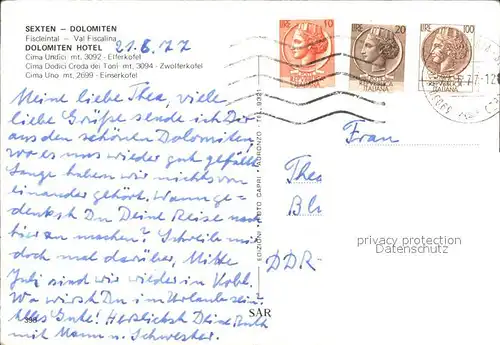 SEXTEN – DOLOMITEN
Fischleintal – Val Fiscalina
DOLOMITEN HOTEL 21.6.77
Cima Undici mt. 3092 - Elferkofel
Cima Dodici Croda dei Toni mt. 3094 - Zwölferkofel
Cima Uno mt. 2699 - Einserkofel
Meine liebe Thea, viele
liebe Grüße sende ich Dir
aus den schönen Dolomiten,
wo es uns wieder gut gefällt.
Lange haben wir nichts von
einander gehört. Wann ge-
denkst Du Deine Reise nach
hier zu machen? Schreib mir
doch mal darüber, Mitte
Juli sind wir wieder in Kobl.
Wo wirst Du im Urlaub sein?
Alles Gute! Herzlichst Deine Ruth
mit Mann u. Schwester.
398
EDIZIONI FOTO CAPRI - AURONZO - TEL.
SAR
LIRE 10
LIRE 20
LIRE 100
ITALIANA
ITALIANA
ITALIANA
Frau
Thea
Bl
DDR
privacy protection
Datenschutz